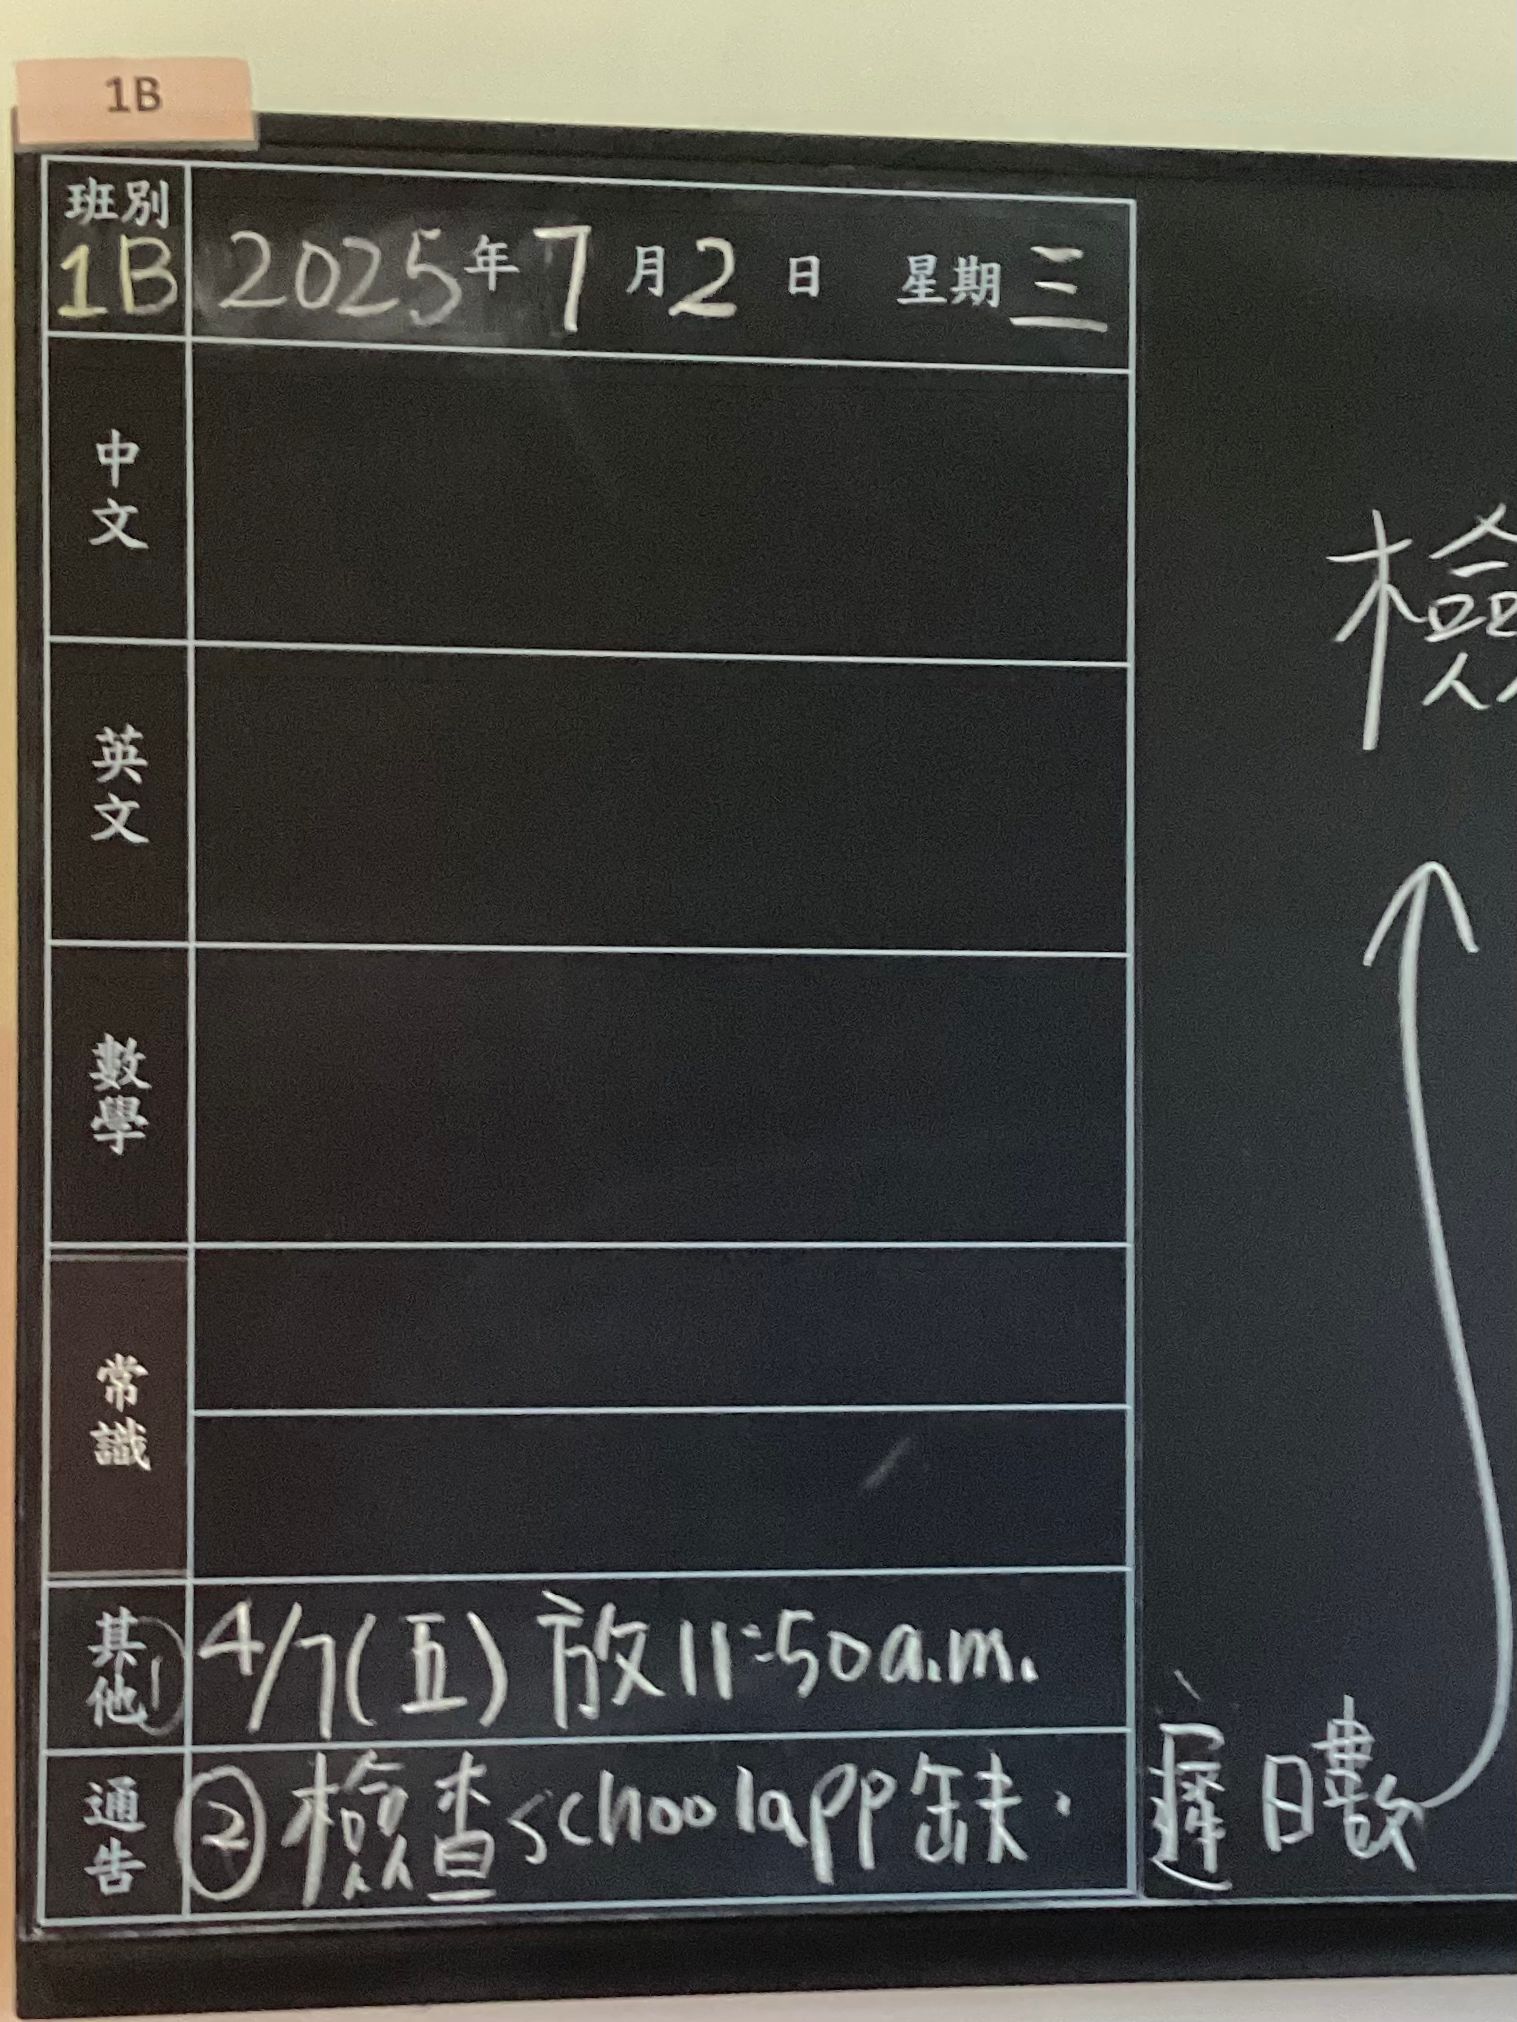 1B
班別
1B 2025年7月2日 星期三
中文
英文
數學
常識
其他 ① 4/7(五) 放11:50a.m.
通告 ② 檢查schoolapp缺.遲日數
檢